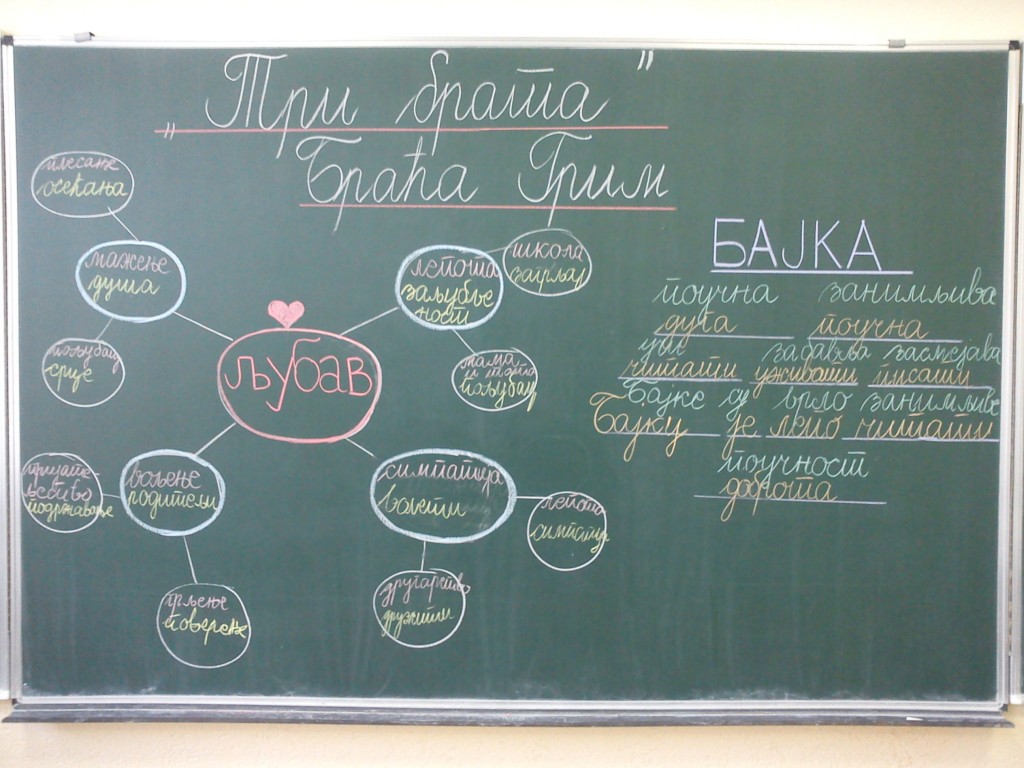 „Три брата”
Браћа Грим
плесање
осећања
мажење
душа
пољубац
срце
љубав
лепота
заљубље
ност
школа
загрљај
мама
и тата
пољубац
вољење
родитељи
пријате-
љство
подржавање
грљење
поверење
симпатија
волети
лепота
симпатија
другарство
дружити
БАЈКА
поучна занимљива
дуга поучна
учи задавља засмејава
читати уживати писати
Бајке су врло занимљиве
Бајку је лепо читати
поучност
доброта